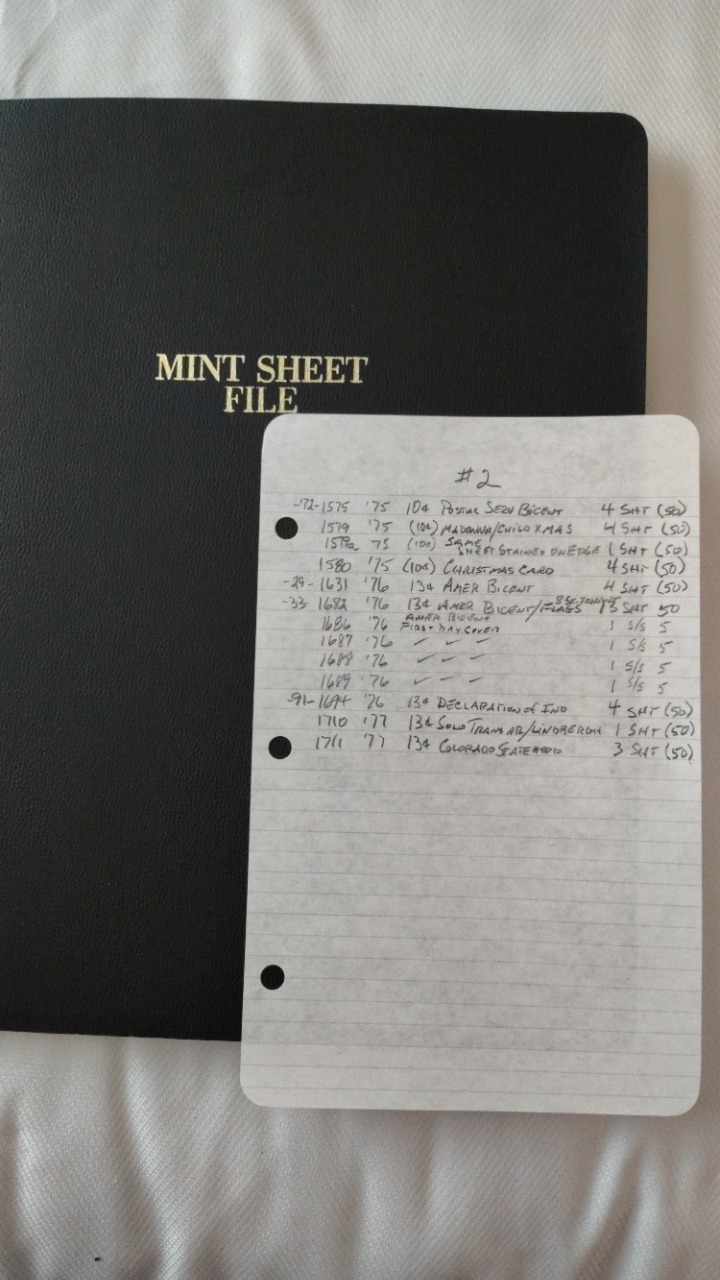 MINT SHEET
FILE
#2
-'72-1575 '75 10¢ POSTAL SERV BICENT 4 SHT (50)
1579 '75 (10¢) MADONNA/CHILD XMAS 4 SHT (50)
1579a 75 (10¢) SAME SHEET STAINED ON EDGE 1 SHT (50)
1580 '75 (10¢) CHRISTMAS CARD 4 SHT (50)
-29-1631 '76 13¢ AMER BICENT 4 SHT (50)
-33-1682 '76 13¢ AMER BICENT/FLAGS SHT 50
1686 '76 AMER BICENT FIRST DAY COVER 1 S/S 5
1687 '76 ✓ ✓ ✓ 1 S/S 5
1688 '76 ✓ ✓ ✓ 1 S/S 5
1689 '76 ✓ ✓ ✓ 1 S/S 5
-91-1694 '76 13¢ DECLARATION of IND 4 SHT (50)
1710 '77 13¢ SOLO TRANSATL/LINDBERGH 1 SHT (50)
1711 '77 13¢ COLORADO STATEHOOD 3 SHT (50)